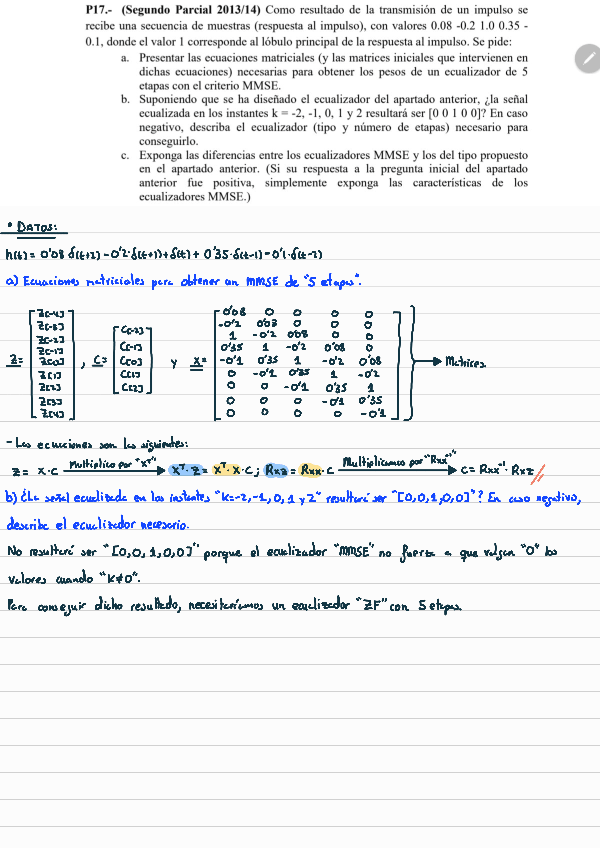 P17.- (Segundo Parcial 2013/14) Como resultado de la transmisión de un impulso se
recibe una secuencia de muestras (respuesta al impulso), con valores 0.08 -0.2 1.0 0.35 -
0.1, donde el valor 1 corresponde al lóbulo principal de la respuesta al impulso. Se pide:
a. Presentar las ecuaciones matriciales (y las matrices iniciales que intervienen en
dichas ecuaciones) necesarias para obtener los pesos de un ecualizador de 5
etapas con el criterio MMSE.
b. Suponiendo que se ha diseñado el ecualizador del apartado anterior, ¿la señal
ecualizada en los instantes k = -2, -1, 0, 1 y 2 resultará ser [0 0 1 0 0]? En caso
negativo, describa el ecualizador (tipo y número de etapas) necesario para
conseguirlo.
c. Exponga las diferencias entre los ecualizadores MMSE y los del tipo propuesto
en el apartado anterior. (Si su respuesta a la pregunta inicial del apartado
anterior fue positiva, simplemente exponga las características de los
ecualizadores MMSE.)
• DATOS:
h(t) = 0'08 δ(t+2) - 0'2·δ(t+1) + δ(t) + 0'35·δ(t-1) - 0'1·δ(t-2)
a) Ecuaciones matriciales para obtener un MMSE de "5 etapas".
Z[-4] 0'08 0 0 0 0
Z[-3] -0'2 0'08 0 0 0
Z[-2] C[-2] 1 -0'2 0'08 0 0
Z[-1] C[-1] 0'35 1 -0'2 0'08 0
Z = Z[0] , C = C[0] y X = -0'1 0'35 1 -0'2 0'08 → Matrices
Z[1] C[1] 0 -0'1 0'35 1 -0'2
Z[2] C[2] 0 0 -0'1 0'35 1
Z[3] 0 0 0 -0'1 0'35
Z[4] 0 0 0 0 -0'1
- Las ecuaciones son las siguientes:
Z = X·C Multiplico por "Xᵀ" → Xᵀ·Z = Xᵀ·X·C ; Rxz = Rxx·C Multiplicamos por "Rxx⁻¹" → C = Rxx⁻¹·Rxz
b) ¿La señal ecualizada en los instantes "K=-2,-1,0,1 y 2" resultará ser "[0,0,1,0,0]"? En caso negativo,
describe el ecualizador necesario.
No resultará ser "[0,0,1,0,0]" porque el ecualizador "MMSE" no fuerza a que valgan "0" los
valores cuando "K≠0".
Para conseguir dicho resultado, necesitaríamos un ecualizador "ZF" con 5 etapas.